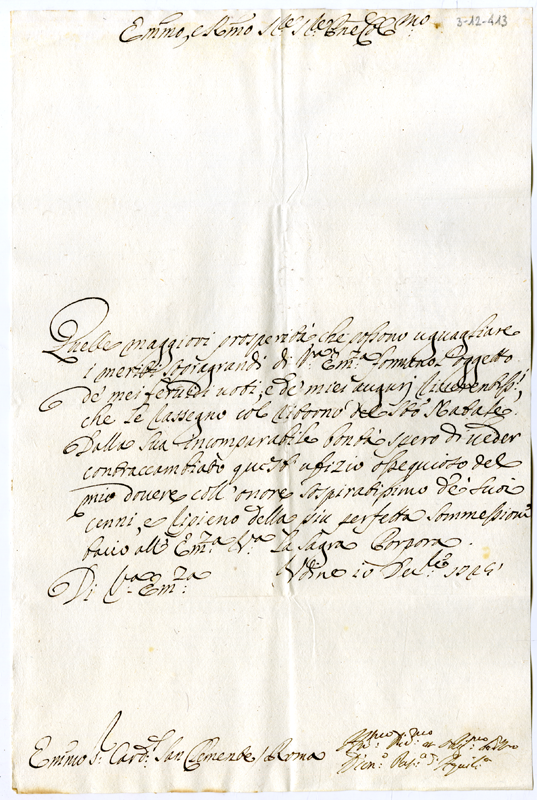 3-12-413
Emmo, e Rmo Sig.e Sig.e Pne Col.mo
Quelle maggiori prosperità che possono uguagliare
i meriti sopragrandi di V.ra Em.za formano l'oggetto
de' miei fervidi voti, e de' miei augurj riverentiss.i,
che le rassegno col ritorno del S.to Natale.
Dalla sua incomparabile bontà spero di veder
contraccambiato questo ufizio ossequioso del
mio dovere coll'onore sospiratissimo de' suoi
cenni, e ripieno della più perfetta sommessione
bacio all'Em.za V.ra la Sagra Porpora.
Di V.ra Em.za Udine 10 Dec.re
Emmo S.r Card.l San Clemente / Roma
Um.mo Div.mo et Obl.mo
Dion.o